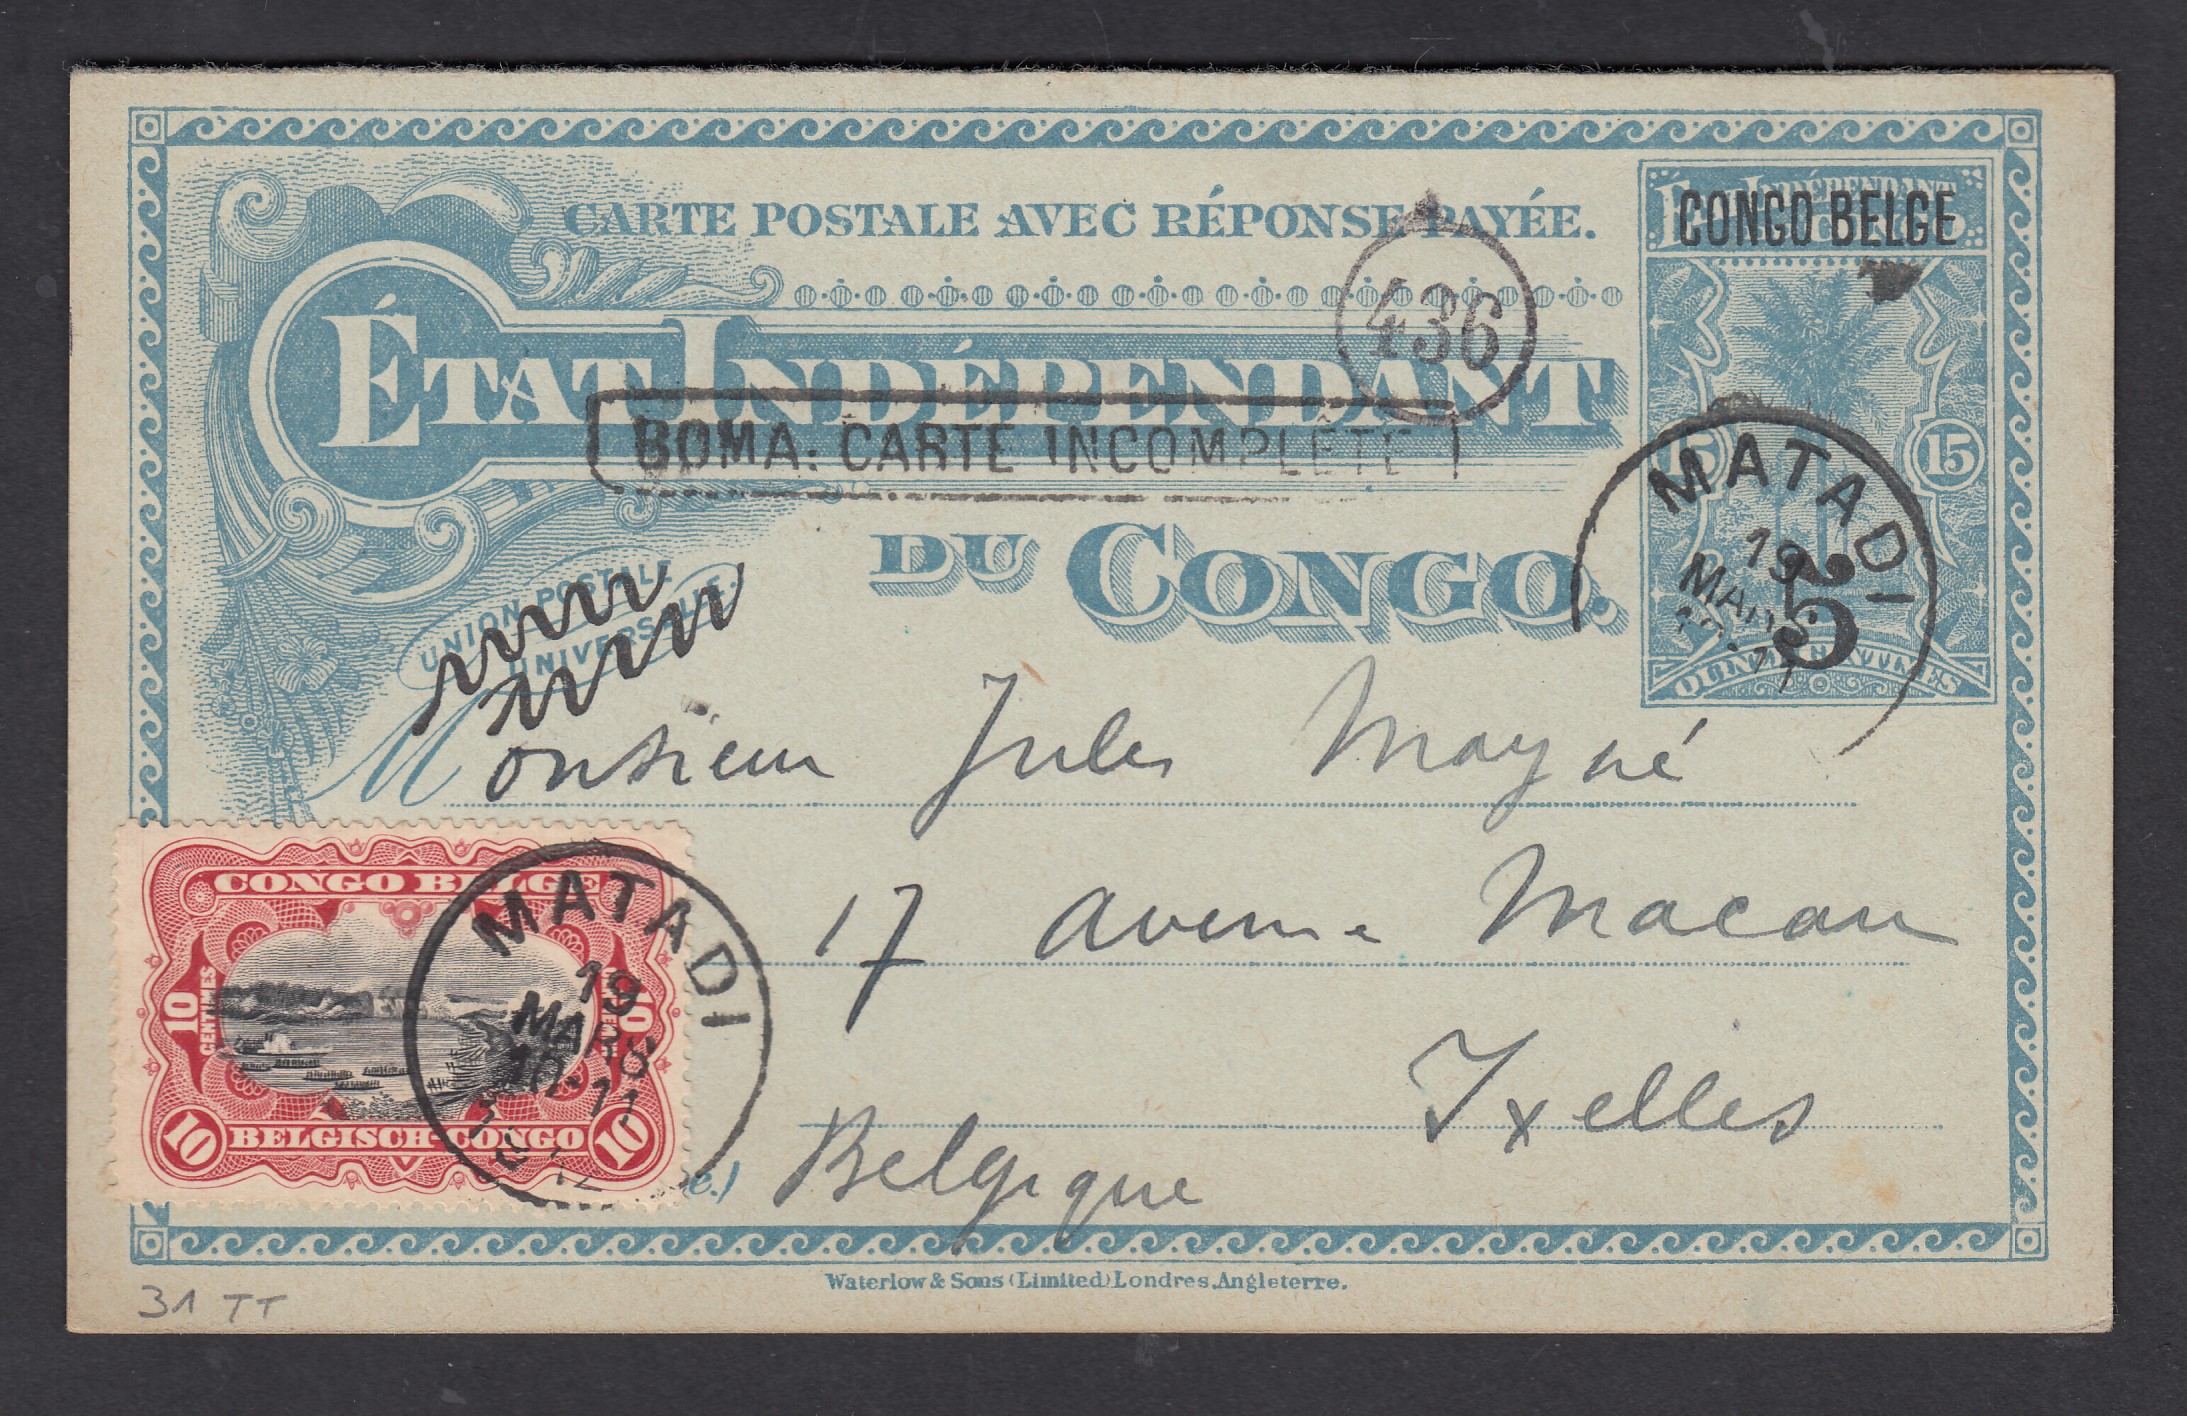 CARTE POSTALE AVEC RÉPONSE PAYÉE.
ÉTAT INDÉPENDANT
DU CONGO.
CONGO BELGE
15 15
5
QUINZE CENTIMES
436
BOMA: CARTE INCOMPLÈTE
UNION POSTALE
UNIVERSELLE.
MATADI
19
MARS
Monsieur Jules Mayné
17 avenue Macau
Ixelles
Belgique
CONGO BELGE
10 CENTIMES
10
BELGISCH-CONGO
10 10
MATADI
19
MARS
10-11
12
Waterlow & Sons (Limited) Londres, Angleterre.
31 TT